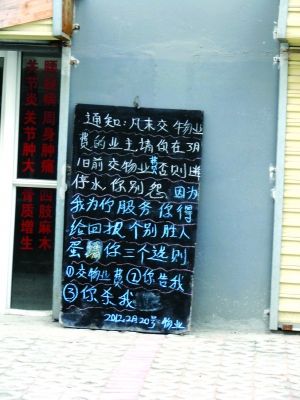 腰腿病 周身肿痛 四肢麻木
关节炎 关节肿大 骨质增生
通知:凡未交物业
费的业主请你在3月
1日前交物业费否则
停水你别怨因为
我为你服务你得
给回报个别胜人
蛋 你三个选则
①交物业费②你告我
③你杀我
2012.2月20号 物业